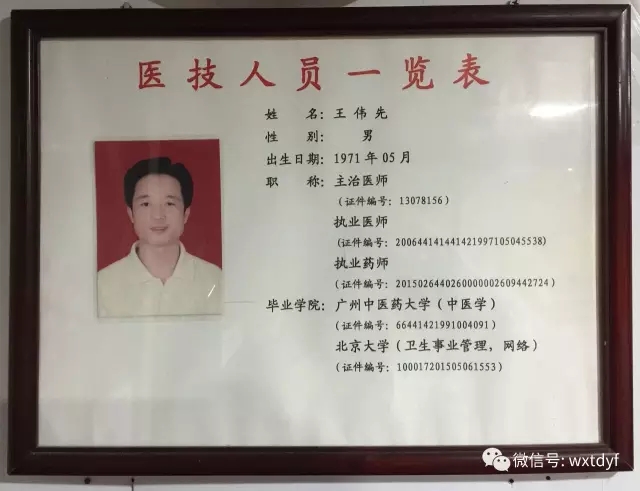 医技人员一览表
姓 名：王伟先
性 别： 男
出生日期：1971年05月
职 称：主治医师
（证件编号：13078156）
执业医师
（证件编号：200644141441421997105045538）
执业药师
（证件编号：20150264402600000026094​42724）
毕业学院：广州中医药大学（中医学）
（证件编号：66441421991004091）
北京大学（卫生事业管理，网络）
（证件编号：100017201505061553）
微信号: wxtdyf